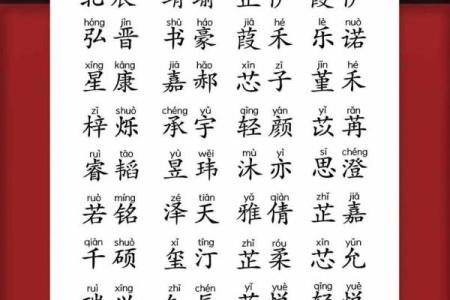 hóng jìn shū háo jiā hé lè nuò
弘晋 书豪 葭禾 乐诺
xīng kāng jiā hǎo xīn zǐ jǐn hé
星康 嘉郝 芯子 堇禾
zǐ shuò chéng yǔ qīng yán yǐ rǎn
梓烁 承宇 轻颜 苡苒
ruì tāo yù wěi mù yì sī chéng
睿韬 昱玮 沐亦 思澄
ruò míng zé tiān yǎ qiàn zhǐ jiā
若铭 泽天 雅倩 芷嘉
qiān shuò xǐ tīng zhǐ róu xīn yǔn
千硕 玺汀 芷柔 芯允
ruì xīng yù chén zhǐ yuè xīn yuè